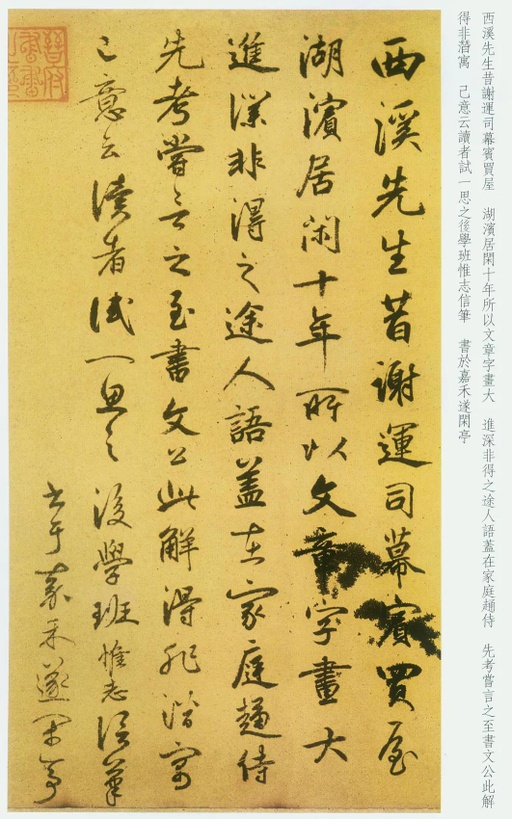 西溪先生昔謝運司幕賓買屋　湖濱居閑十年所以文章字畫大　進深非得之途人語蓋在家庭趨侍　先考嘗言之至書文公此解
得非潛寓　己意云讀者試一思之後學班惟志信筆　書於嘉禾遂閑亭
西溪先生昔謝運司幕賓買屋
湖濱居閑十年所以文章字畫大
進深非得之途人語蓋在家庭趨侍
先考嘗言之至書文公此解得非潛寓
己意云讀者試一思之後學班惟志信筆
書于嘉禾遂閑亭